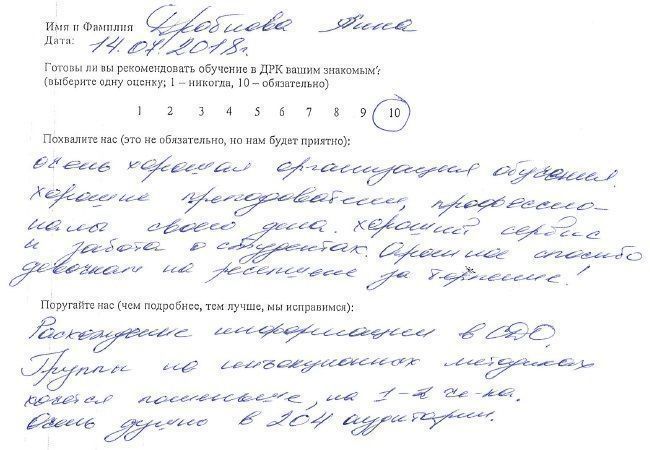 Имя и Фамилия Дробнова Анна
Дата: 14.07.2018г.
Готовы ли вы рекомендовать обучение в ДРК вашим знакомым?
(выберите одну оценку; 1 – никогда, 10 – обязательно)
1 2 3 4 5 6 7 8 9 10
Похвалите нас (это не обязательно, но нам будет приятно):
очень хорошая организация обучения.
хорошие преподаватели, профессио-
налы своего дела. хороший сервис
и забота о студентах. Огромное спасибо
девочкам на ресепшене за терпение!
Поругайте нас (чем подробнее, тем лучше, мы исправимся):
Расхождение информации в СДО.
Группы на инъекционных методиках
хочется поменьше, на 1-2 че-ка.
Очень душно в 204 аудитории.